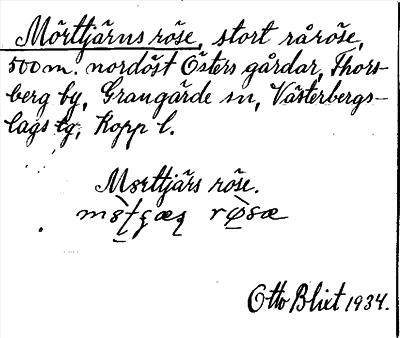 Mörttjärns röse, stort råröse,
500 m. nordöst Östers gårdar, Thors-
berg by, Grangärde sn, Västerbergs-
lags tg, Kopp l.
Mörttjärs röse.
Otto Blixt 1934.